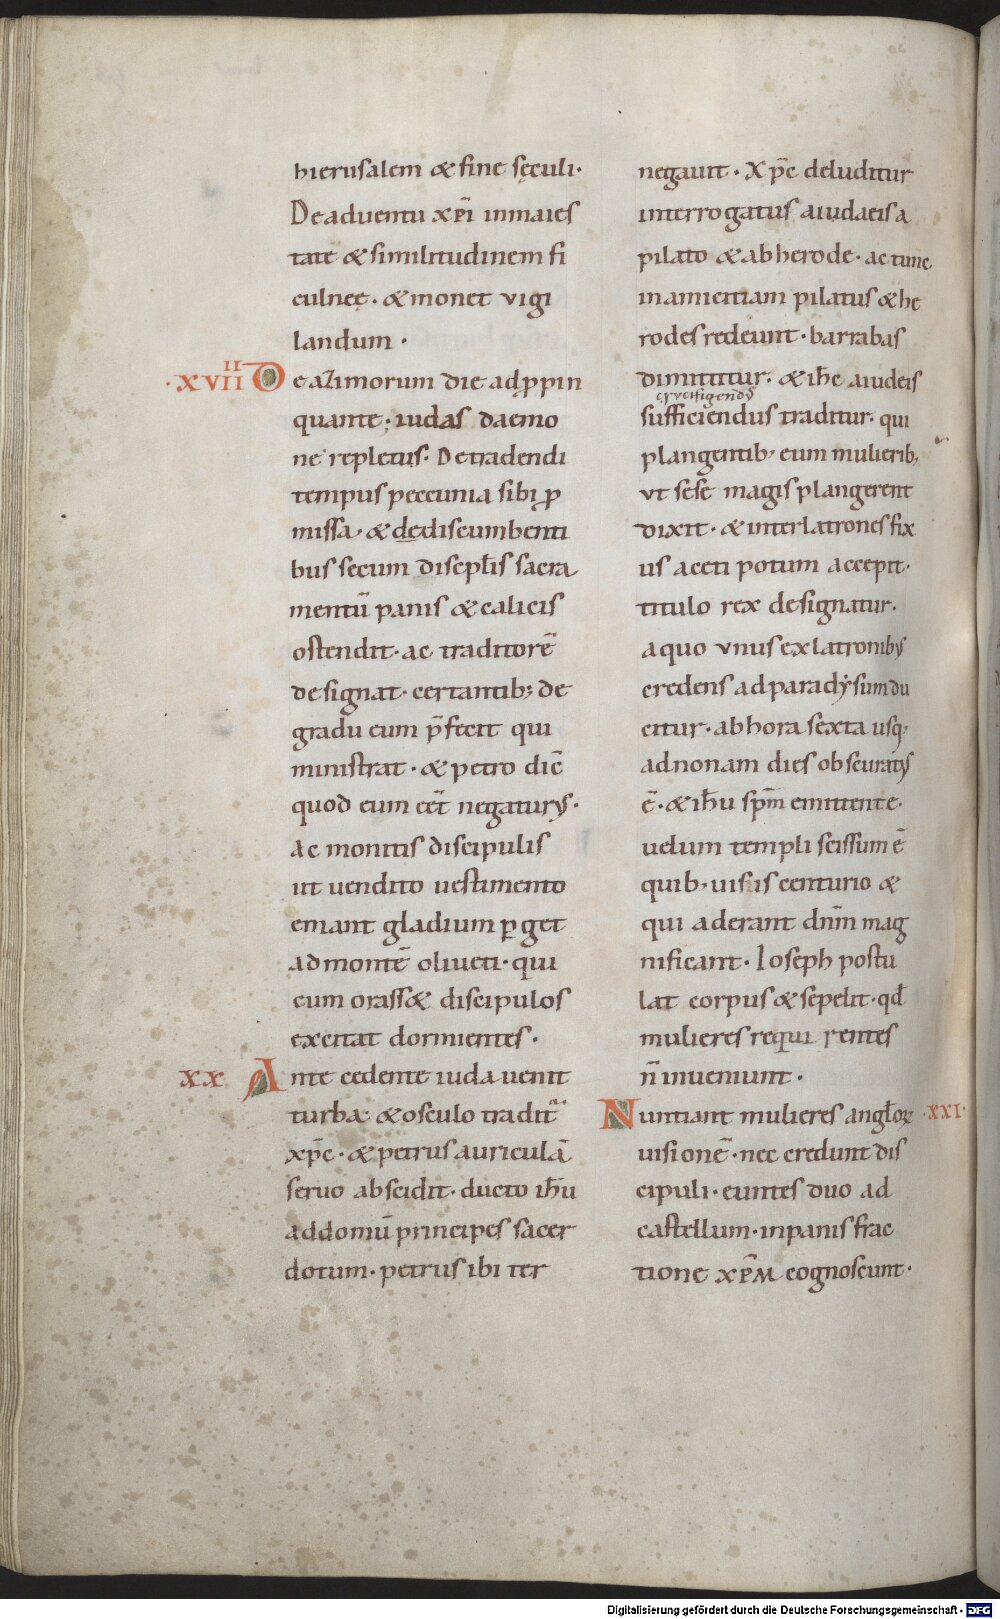 hierusalem & fine sęculi·
De aduentu xp̄i inmaies
tate & similitudinem fi
culneę· & monet vigi
landum·
·XVIIII De azimorum die adpropin
quante· iudas daemo
ne repletus· De tradendi
tempus peccunia sibi ꝓ
missa· & dediscumbenti
bus secum discipl̄is sacra
mentū panis & calicis
ostendit· ac traditorē
designat· certantib; de
gradu eum p̄fecit qui
ministrat· & petro dic̄
quod eum eēt negaturus·
Ac monitis discipulis
ut uendito uestimento
emant gladium ꝑget
ad montē oliueti· qui
cum orass& discipulos
excitat dormientes·
XX Antecedente iuda uenit
turba· & osculo tradit̄
xp̄c· & petrus auriculā
seruo abscidit· ducto ih̄u
addomū principes sacer
dotum· petrus ibi ter
negauit· Xp̄c deluditur
interrogatus aiudaeis a
pilato & abherode· ac tunc
inamicitiam pilatus & he
rodes redeunt· barrabas
dimittitur· & ih̄c aiudeis
crucifigendus
sufficiendus traditur· qui
plangentib; eum mulierib;
vt sese magis plangerent
dixit· & interlatrones fix
us aceti potum accepit·
titulo rex designatur·
aquo vnus exlatronibus
credens adparadysum du
citur· abhora sexta usq;
adnonam dies obscuratus
ē· & ih̄u sp̄m emittente·
uelum templi scissum ē
quib; uisis centurio &
qui aderant dn̄m mag
nificant· Ioseph postu
lat corpus & sepelit· qd̄
mulieres requirentes
n̄ inueniunt·
Nuntiant mulieres angl̄oꝝ ·XXI·
uisionē· nec credunt dis
cipuli· euntes duo ad
castellum· inpanis frac
tione xp̄m cognoscunt·
Digitalisierung gefördert durch die Deutsche Forschungsgemeinschaft - DFG